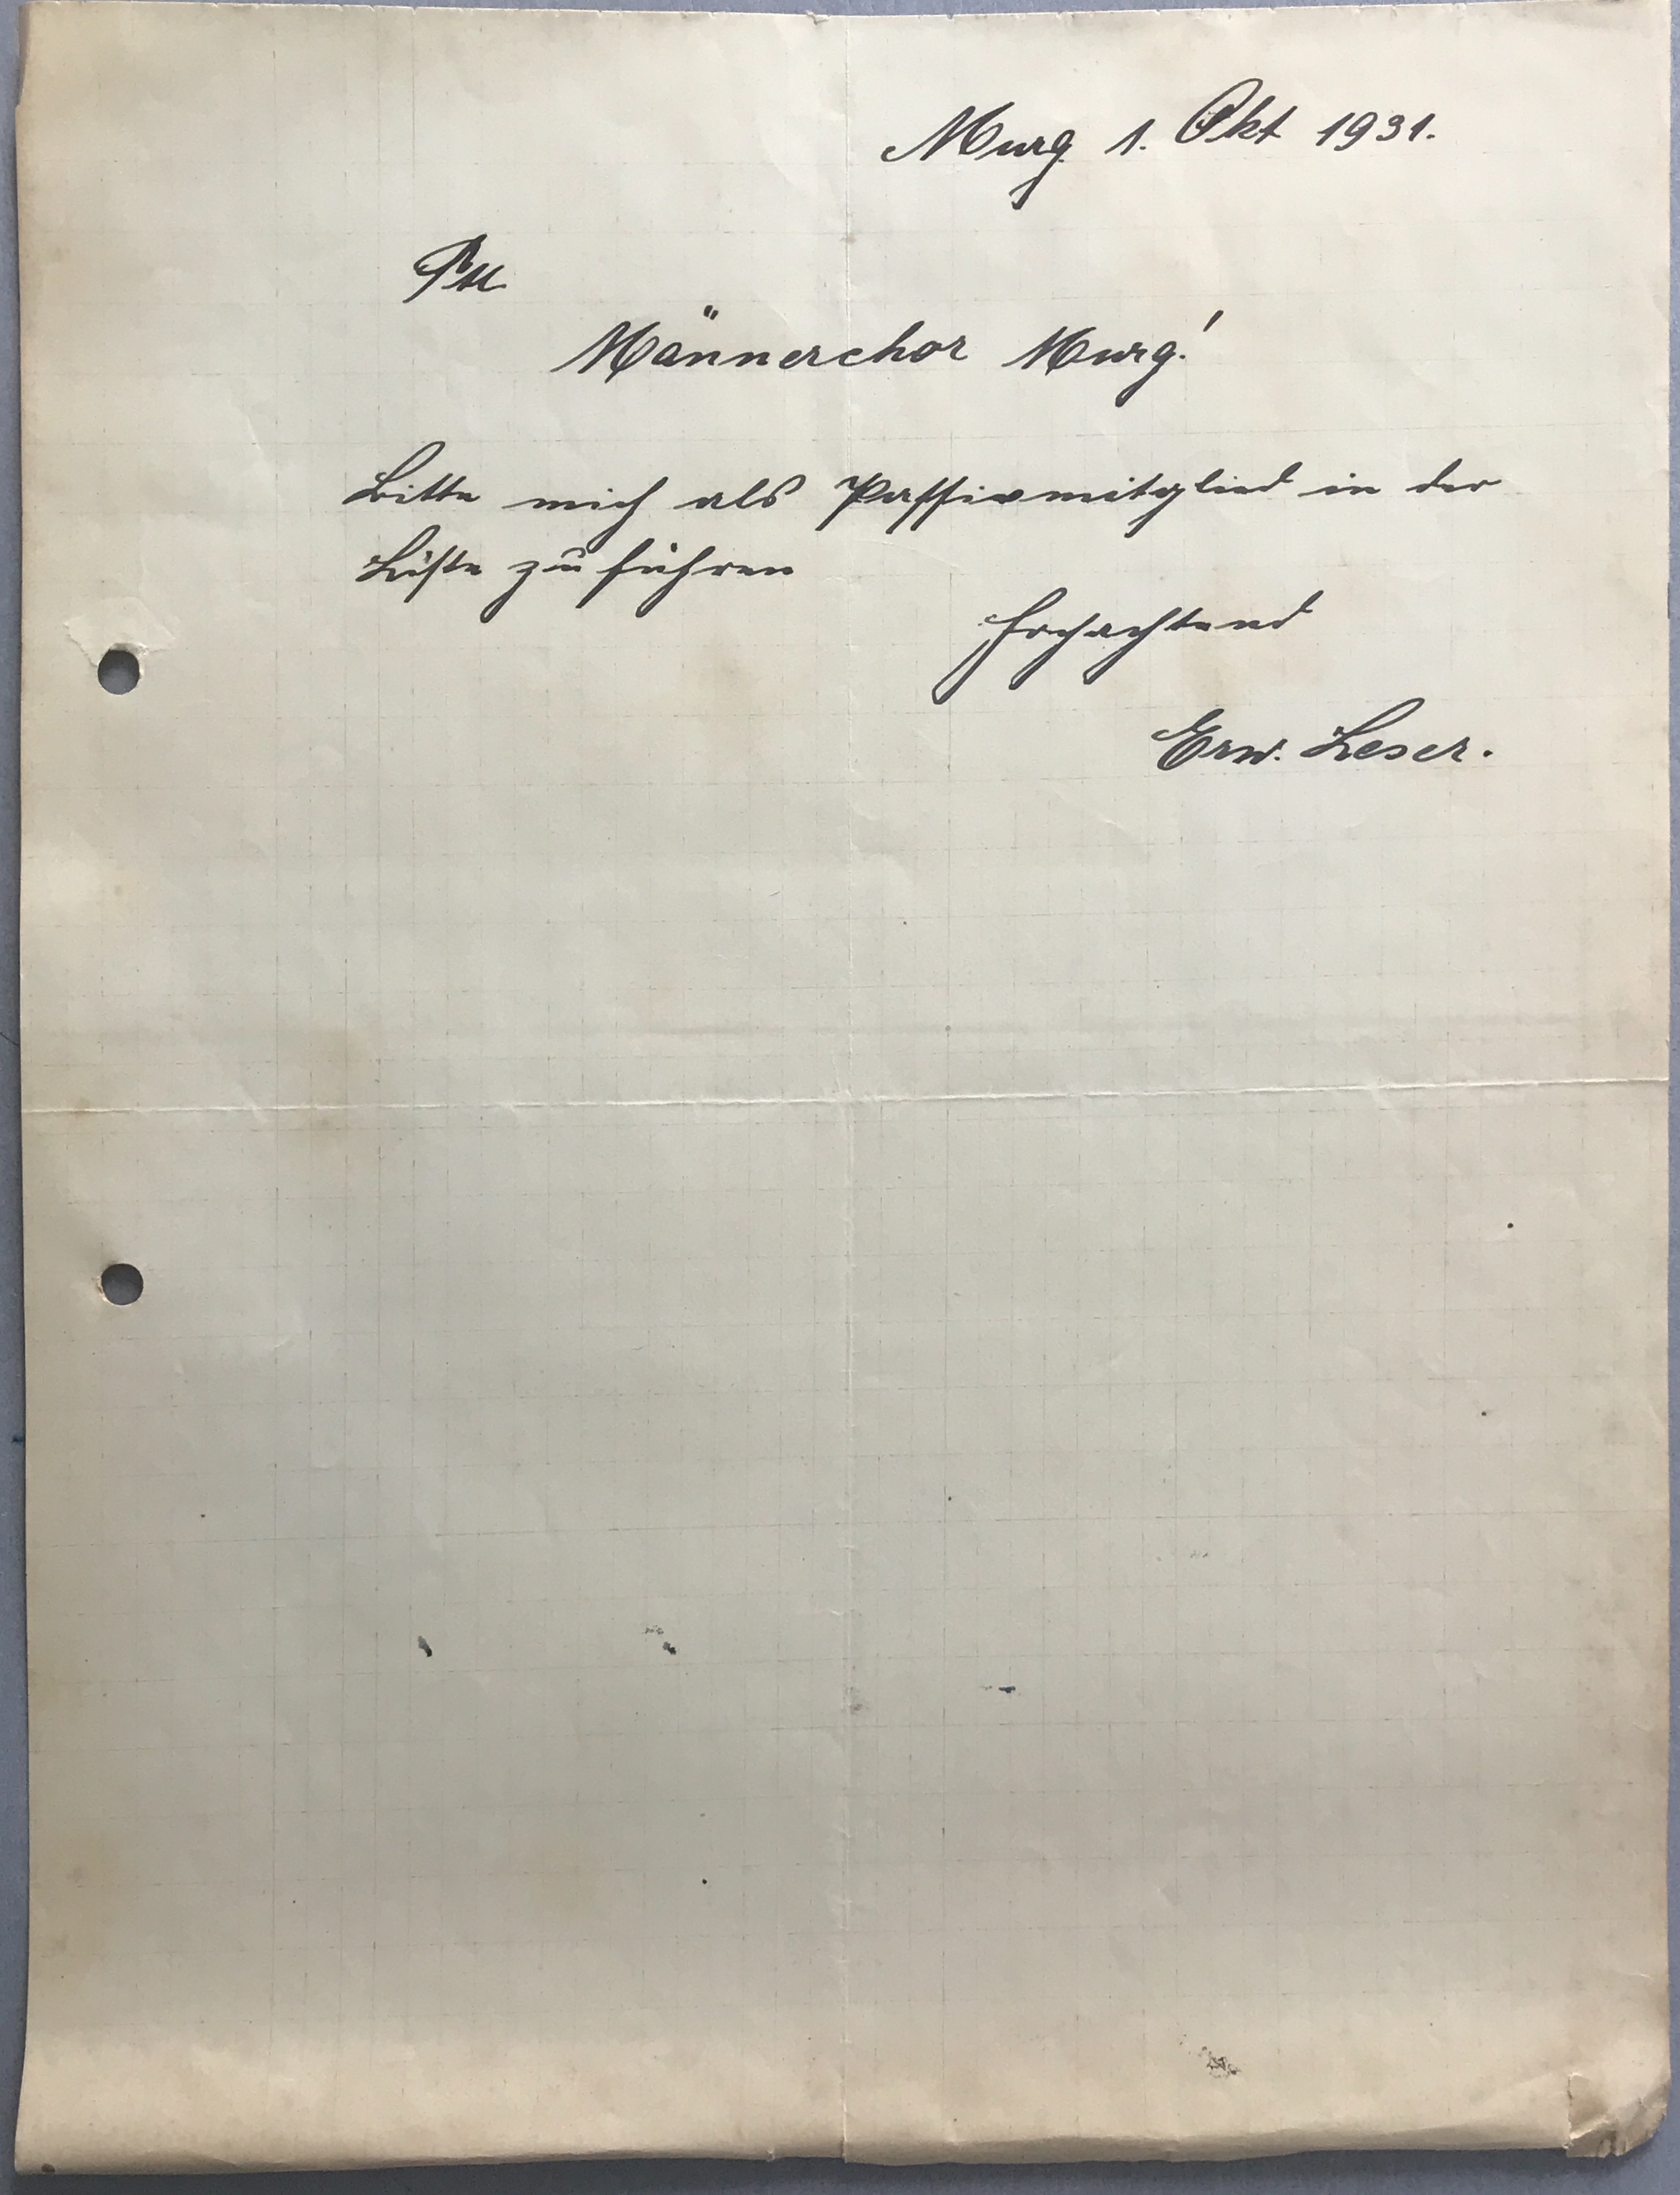 Murg 1. Okt 1931.
Ptt.
Männerchor Murg!
Bitte mich als Passivmitglied in der
Liste zu führen
Hochachtend
Erw. Leser.